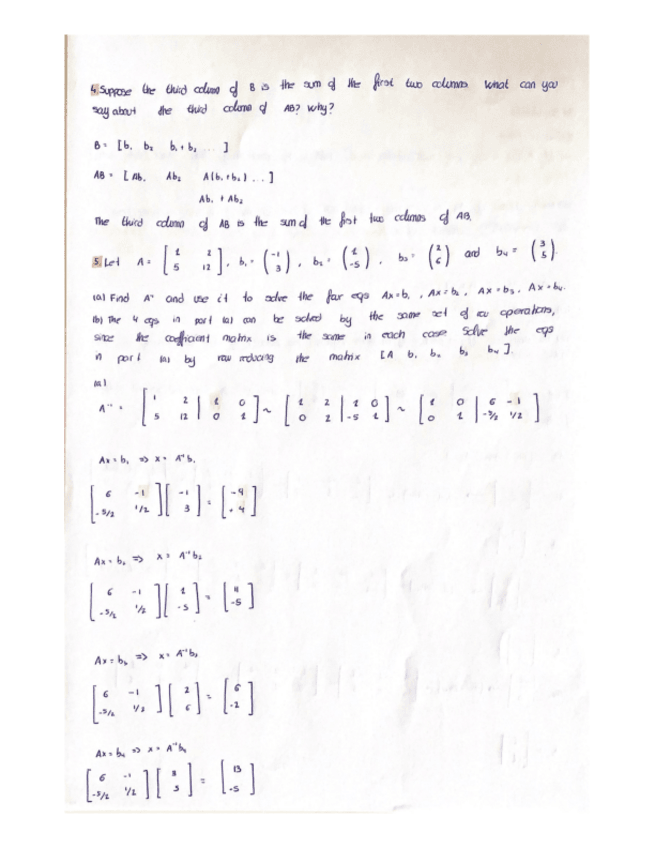 4. Suppose the third column of B is the sum of the first two columns. What can you
say about the third column of AB? Why?
B = [b₁ b₂ b₁+b₂ ...]
AB = [Ab₁ Ab₂ A(b₁+b₂) ...]
Ab₁ + Ab₂
The third column of AB is the sum of the first two columns of AB.
5. Let A = [1 2; 5 12], b₁ = (-1; 3), b₂ = (1; -5), b₃ = (2; 6) and b₄ = (3; 5).
(a) Find A⁻¹ and use it to solve the four eqs Ax=b₁, Ax=b₂, Ax=b₃, Ax=b₄.
(b) The 4 eqs in part (a) can be solved by the same set of row operations,
since the coefficient matrix is the same in each case. Solve the eqs
in part (a) by row reducing the matrix [A b₁ b₂ b₃ b₄].
(a)
A⁻¹ = [1 2 | 1 0; 5 12 | 0 1] ~ [1 2 | 1 0; 0 2 | -5 1] ~ [1 0 | 6 -1; 0 1 | -5/2 1/2]
Ax = b₁ => x = A⁻¹b₁
[6 -1; -5/2 1/2] [-1; 3] = [-9; +4]
Ax = b₂ => x = A⁻¹b₂
[6 -1; -5/2 1/2] [1; -5] = [11; -5]
Ax = b₃ => x = A⁻¹b₃
[6 -1; -5/2 1/2] [2; 6] = [6; -2]
Ax = b₄ => x = A⁻¹b₄
[6 -1; -5/2 1/2] [3; 5] = [13; -5]